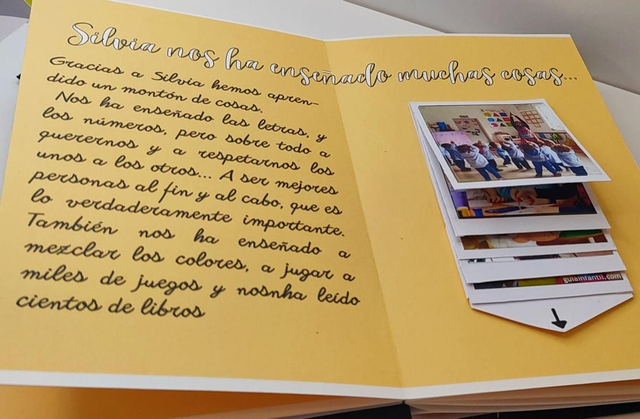 Silvia nos ha enseñado muchas cosas...
Gracias a Silvia hemos apren-
dido un montón de cosas.
Nos ha enseñado las letras, y
los números, pero sobre todo a
querernos y a respetarnos los
unos a los otros... A ser mejores
personas al fin y al cabo, que es
lo verdaderamente importante.
También nos ha enseñado a
mezclar los colores, a jugar a
miles de juegos y nosnha leído
cientos de libros
guiainfantil.com